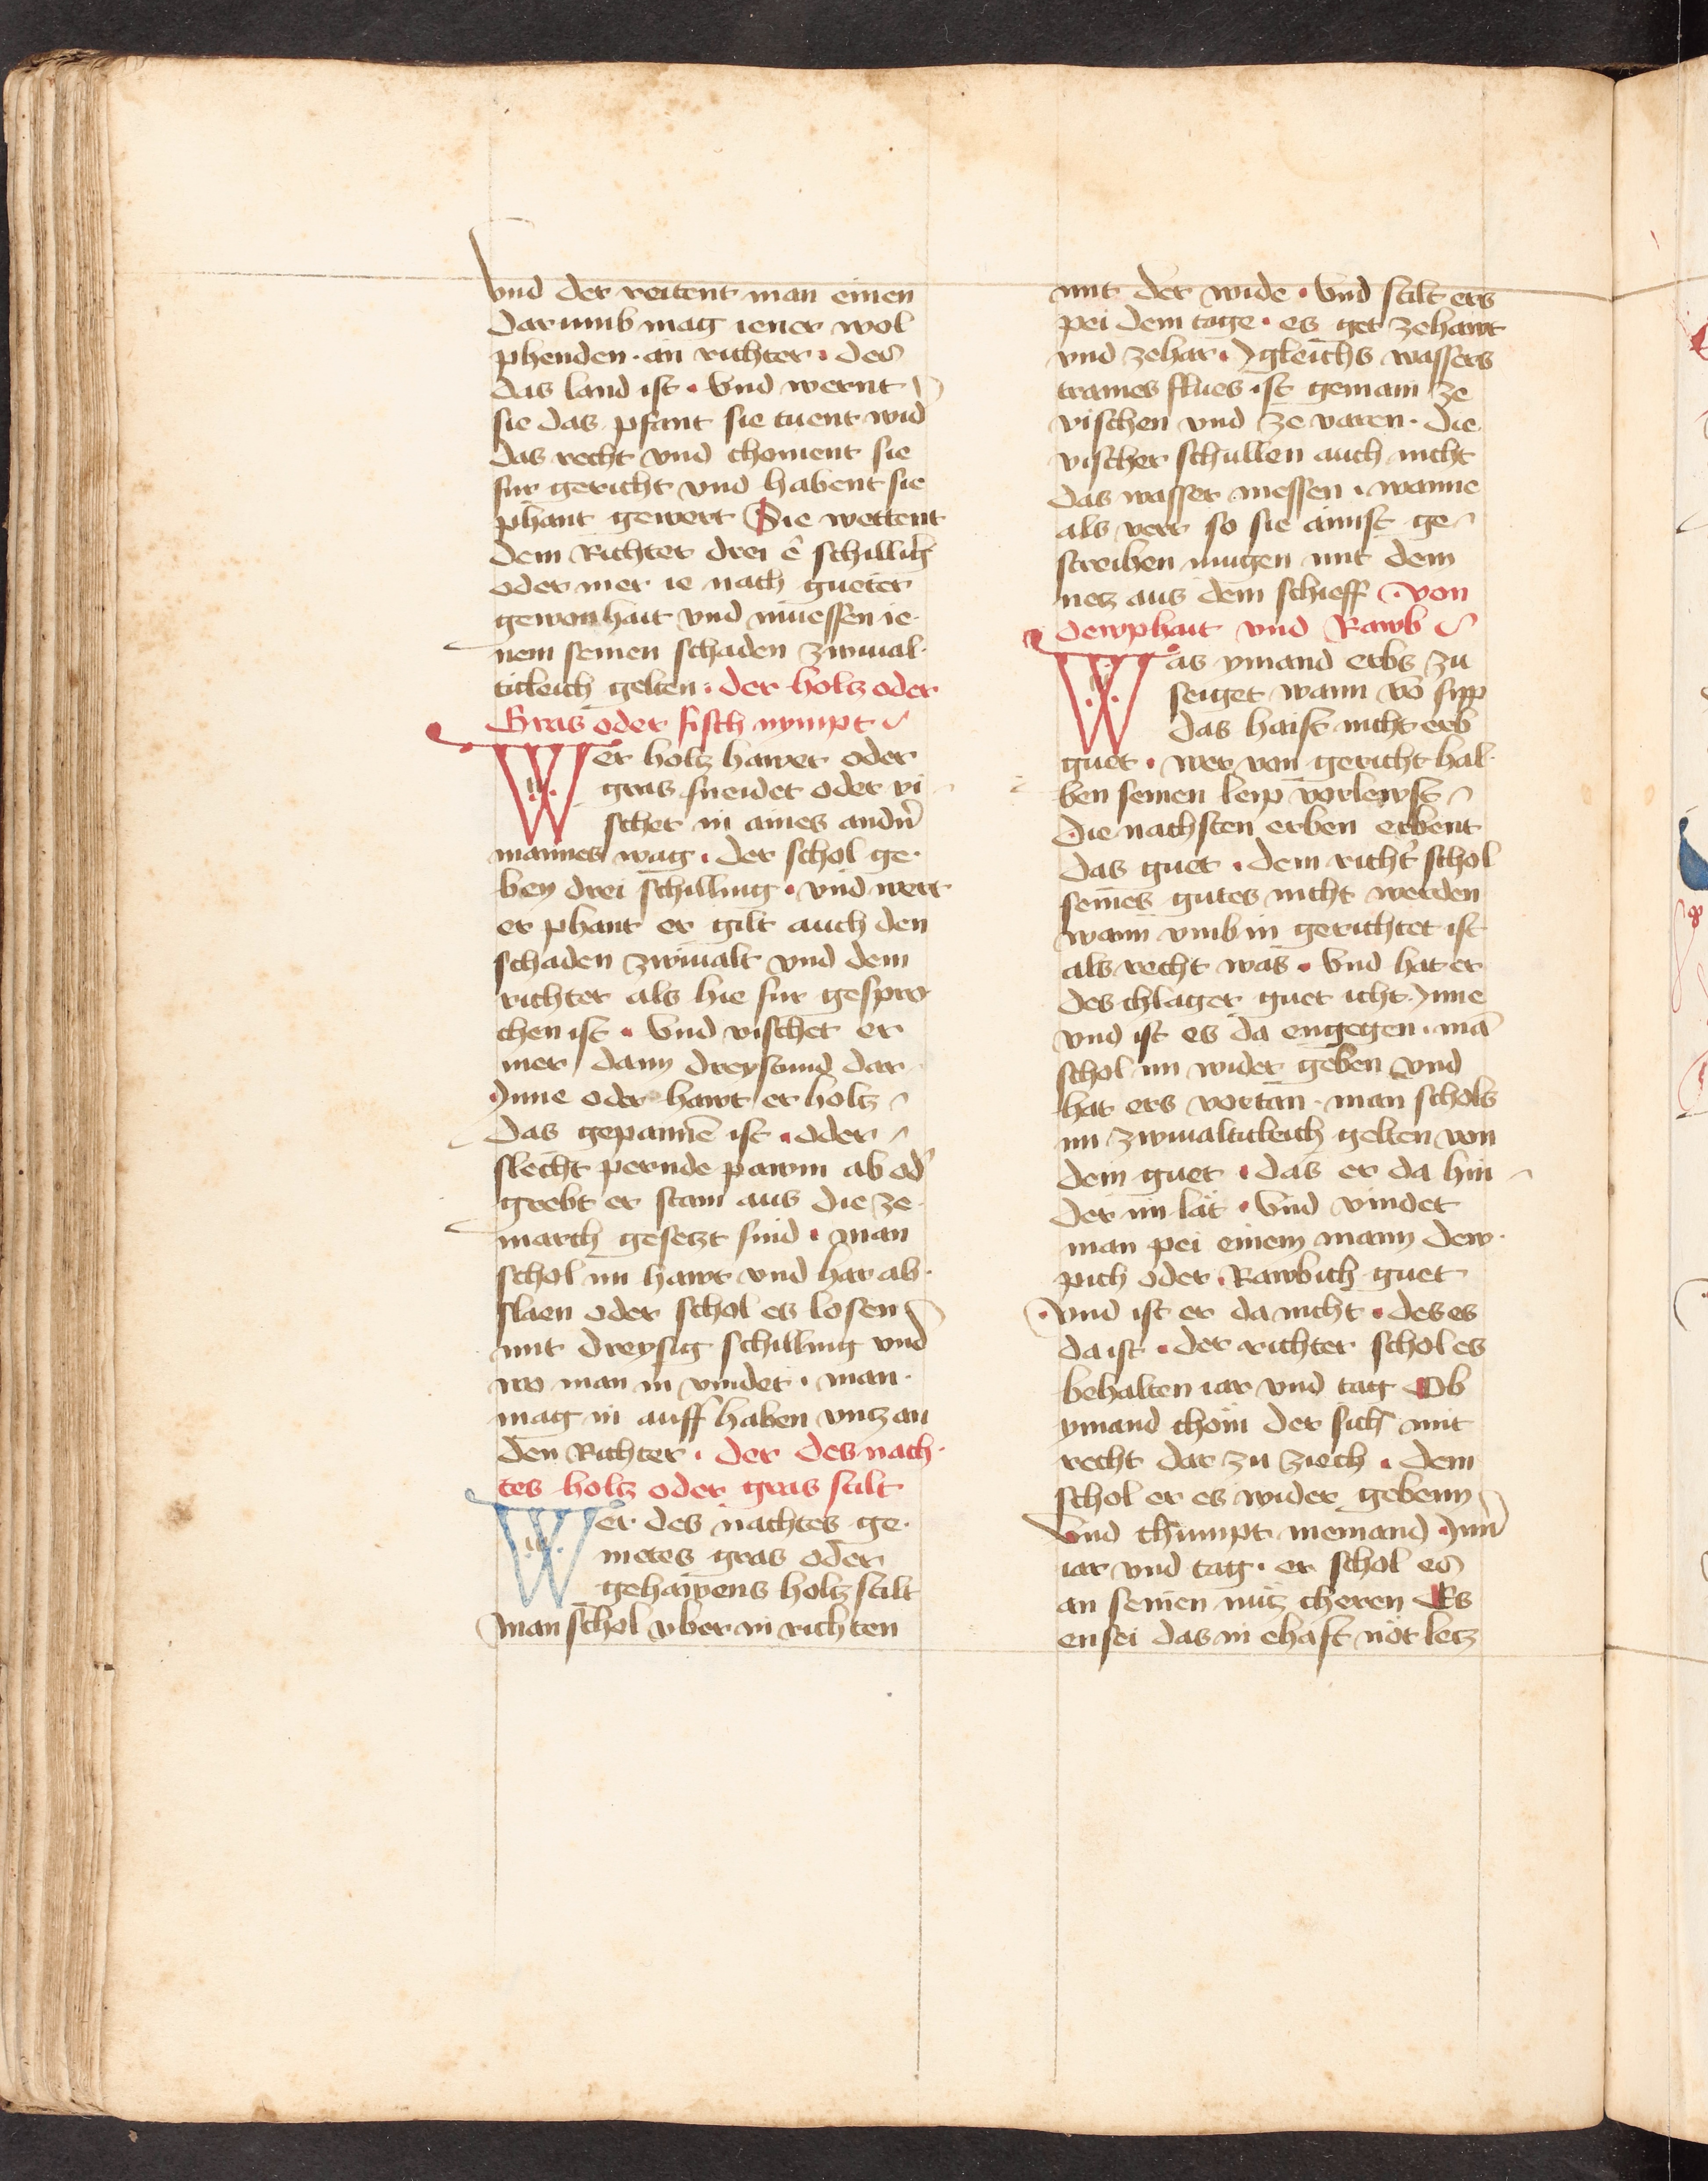 vnd der reittent man einen
darumb mag iener wol
phenden · an richter · des
das land ist · Vnd wernt
sie das pfant sie tuent wid
das recht vnd choment sie
fur gericht vnd habent sie
phant gewert Sie wettent
dem Richter drei ẽ schilling
oder mer ie nach gueter
gewonhait vnd muessen ie
nem seinen schaden zwiual
titleich gelten · der holtz oder
Gras oder fisch nympt
Wer holtz hawet oder
gras sneidet oder vi
schet in aines andn̄
mannes wag · der schol ge
ben drei schilling · vnd wert
er phant er gilt auch den
schaden zwiualt vnd dem
richter als hie fur gespro
chen ist · Vnd vischet er
mer dann dreystund dar
Inne oder hawt er holtz
das gepannẽ ist · oder
slecht pernde pawm ab od
grebt er stain aus die ze
march gesetzt sind · man
schol im hawt vnd har ab
slaen oder schol es losen
mit dreysig schilling vnd
wo man in vindet · man
mag in auff haben vntz an
den Richter · der des nach
tes holtz oder gras stilt
Wer des nachtes ge
metes gras oder
gehawens holtz stilt
man schol vber in richten
mit der wide · Vnd stilt ers
pei dem tage · es get ze hawt
vnd ze har · Igleichs wassers
trames flues ist gemain ze
vischen vnd ze varen · die
vischer schullen auch nicht
das wasser messen · wanne
als verr so sie aimist ge
streiben mugen mit dem
netz aus dem schieff · von
dewphait vnd Rawb
Was ymand erbs zu
seiget wann võ sipp
das haist nicht erb
guet · wer von gericht hal
ben seinen leip vorlewst
Die nachsten erben erbent
das guet · dem richt̉ schol
seines gutes nicht werden
wann vmb in gerichtet ist
als recht was · Vnd hat er
des chlager guet icht Inne
vnd ist es da engegen · mã
schol im wider geben vnd
hat ers vortan · man schols
im zwiualtitleich gelten von
dem guet · das er da hin
der im lät · Vnd vindet
man pei einem mann dew
pich oder Rawbich guet
vnd ist er da nicht · des es
da ist · der richter schol es
behalten iar vnd tag Ob
ymand chom der sich mit
recht dar zu ziech · dem
schol er es wider gebenn
Vnd chumpt niemand Inn
iar vnd tag · er schol es
an seinen nutz cheren Es
ensei das in ehaft not letz